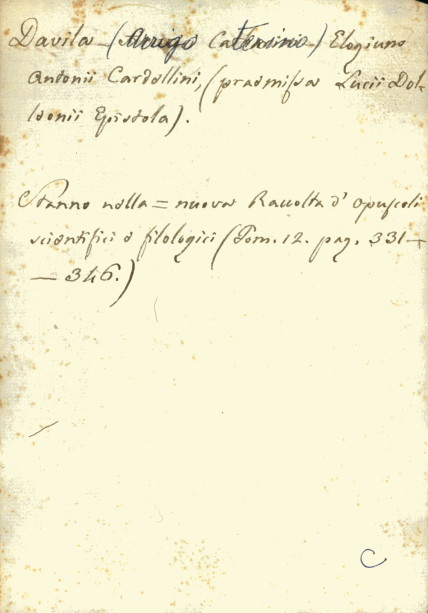 Davila (Arrigo Caterino) Elogium
Antonii Cardellini, (praemissa Lucii Dol-
leonii Epistola).
Stanno nella = nuova Raccolta d' opuscoli
scientifici e filologici (Tom. 12. pag. 331 -
- 346.)
C